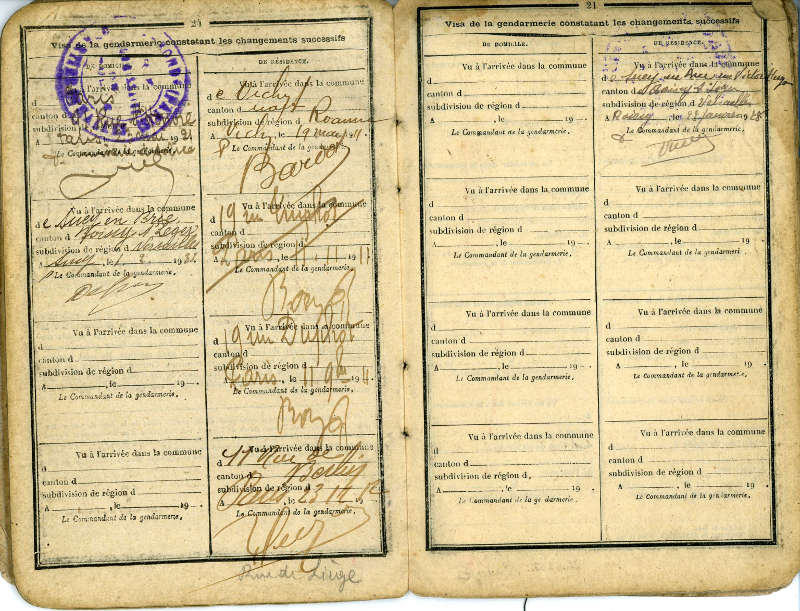 20
Visa de la gendarmerie constatant les changements successifs
DE DOMICILE.
d Paris
canton d
subdivision de région d
A Paris, le 19 21
Le Commandant de la gendarmerie,
Vu à l'arrivée dans la commune
de Sucy en Brie
canton d Boissy St Léger
subdivision de région d Versailles
A Sucy, le 1. 2. 1931.
Le Commandant de la gendarmerie.
Vu à l'arrivée dans la commune
d
canton d
subdivision de région d
A , le 19 .
Le Commandant de la gendarmerie.
Vu à l'arrivée dans la commune
d
canton d
subdivision de région d
A , le 19
Le Commandant de la gendarmerie.
DE RÉSIDENCE.
Vu à l'arrivée dans la commune
de Vichy
canton dudit
subdivision de région d Roanne
A Vichy, le 19 mars 11.
Le Commandant de la gendarmerie.
Vu à l'arrivée dans la commune
d 19 rue
canton d
subdivision de région d
A Paris, le 11. 11. 11
Le Commandant de la gendarmerie.
Vu à l'arrivée dans la commune
d 19 rue
canton d
subdivision de région d
A Paris, le 11 9bre 19 11
Le Commandant de la gendarmerie,
Vu à l'arrivée dans la commune
d 41 Rue de
canton d
subdivision de région d
A Paris, le 23 11 12
Le Commandant de la gendarmerie,
Rue de Liège
21
Visa de la gendarmerie constatant les changements successifs
DE DOMICILE.
Vu à l'arrivée dans la commune
d
canton d
subdivision de région d
A , le 19 .
Le Commandant de la gendarmerie.
Vu à l'arrivée dans la commune
d
canton d
subdivision de région d
A , le 19 .
Le Commandant de la gendarmeri
Vu à l'arrivée dans la commune
d
canton d
subdivision de région d
A , le 19 .
Le Commandant de la gendarmerie.
Vu à l'arrivée dans la commune
d
canton d
subdivision de région d,
A , le 19 .
Le Commandant de la gendarmerie.
DE RÉSIDENCE.
Vu à l'arrivée dans la commune
de Sucy en Brie rue Victor Hugo
canton d Boissy St Léger
subdivision de région d Versailles
A Boissy, le 23 janvier 1928
Le Commandant de la gendarmerie,
Vu à l'arrivée dans la commune
d
canton d
subdivision de région d
A , le 19 .
Le Commandant de la gendarmerie.
Vu à l'arrivée dans la commune
d
canton d
subdivision de région d
A , le 19 .
Le Commandant de la gendarmerie.
Vu à l'arrivée dans la commune
d
canton d
subdivision de région d
A , le 19 .
Le Commandant de la gendarmerie.